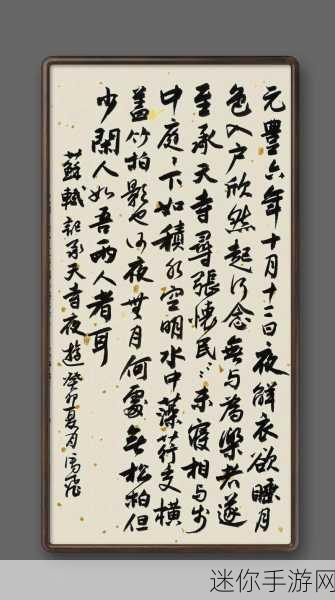 元豐六年十月十二日夜解衣欲睡月
色入户欣然起行念無与為樂者遂
至承天寺尋張懷民〻未寢相与步
中庭〻下如積水空明水中藻荇交横
蓋竹柏影也何夜無月何處無松柏但
少閑人如吾兩人者耳
蘇軾記承天寺夜遊癸卯夏月
迷你手游网